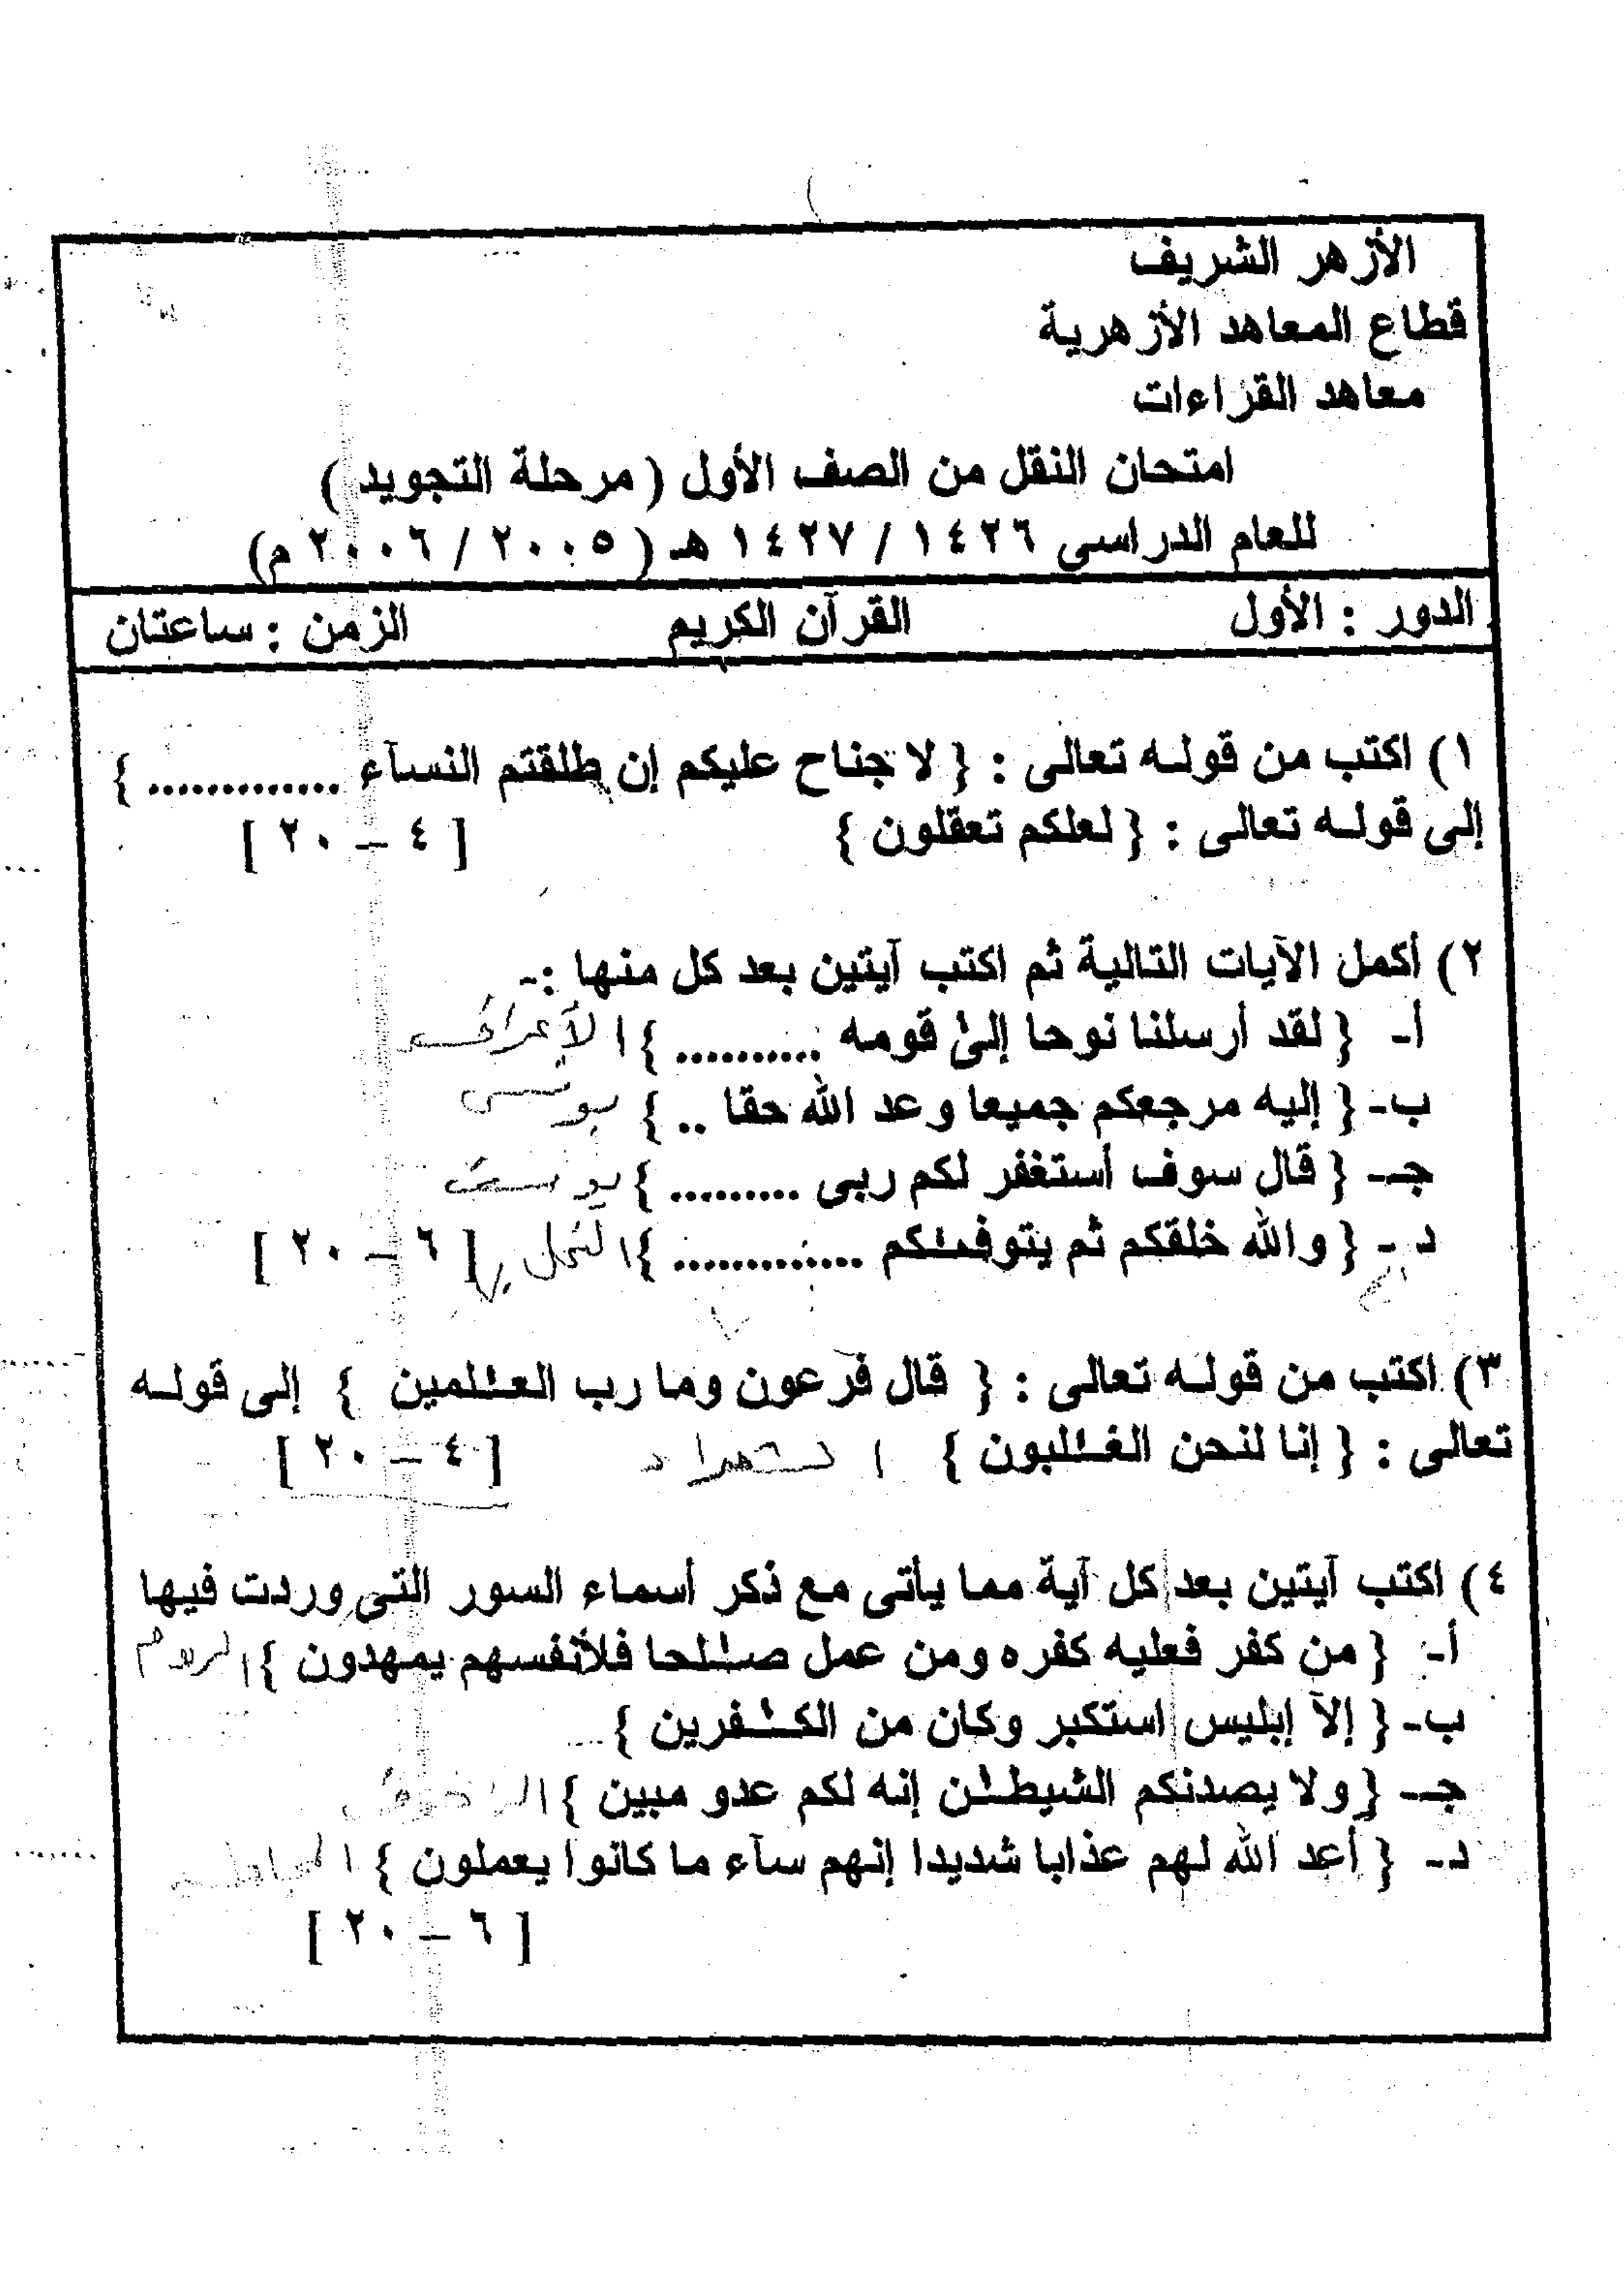 الأزهر الشريف
قطاع المعاهد الأزهرية
معاهد القراءات
امتحان النقل من الصف الأول ( مرحلة التجويد )
للعام الدراسى ١٤٢٦ / ١٤٢٧ هـ ( ٢٠٠٥ / ٢٠٠٦ م)
الدور : الأول القرآن الكريم الزمن : ساعتان
١) اكتب من قوله تعالى : { لا جناح عليكم إن طلقتم النسآء ............. }
إلى قوله تعالى : { لعلكم تعقلون } [ ٤ – ٢٠ ]
٢) أكمل الآيات التالية ثم اكتب آيتين بعد كل منها :-
أ- { لقد أرسلنا نوحا إلىٰ قومه .......... } الأعراف
ب- { إليه مرجعكم جميعا وعد الله حقا .. } يونس
جـ- { قال سوف أستغفر لكم ربى ......... } يوسف
د - { والله خلقكم ثم يتوفىٰكم ............. } النحل [ ٦ – ٢٠ ]
٣) اكتب من قوله تعالى : { قال فرعون وما رب العـٰلمين } إلى قوله
تعالى : { إنا لنحن الغـٰلبون } الشعراء [ ٤ – ٢٠ ]
٤) اكتب آيتين بعد كل آية مما يأتى مع ذكر أسماء السور التى وردت فيها
أ- { من كفر فعليه كفره ومن عمل صـٰلحا فلأنفسهم يمهدون } الروم
ب- { إلآ إبليس استكبر وكان من الكـٰفرين }
جـ- { ولا يصدنكم الشيطـٰن إنه لكم عدو مبين } الزخرف
د- { أعد الله لهم عذابا شديدا إنهم سآء ما كانوا يعملون }
[ ٦ – ٢٠ ]